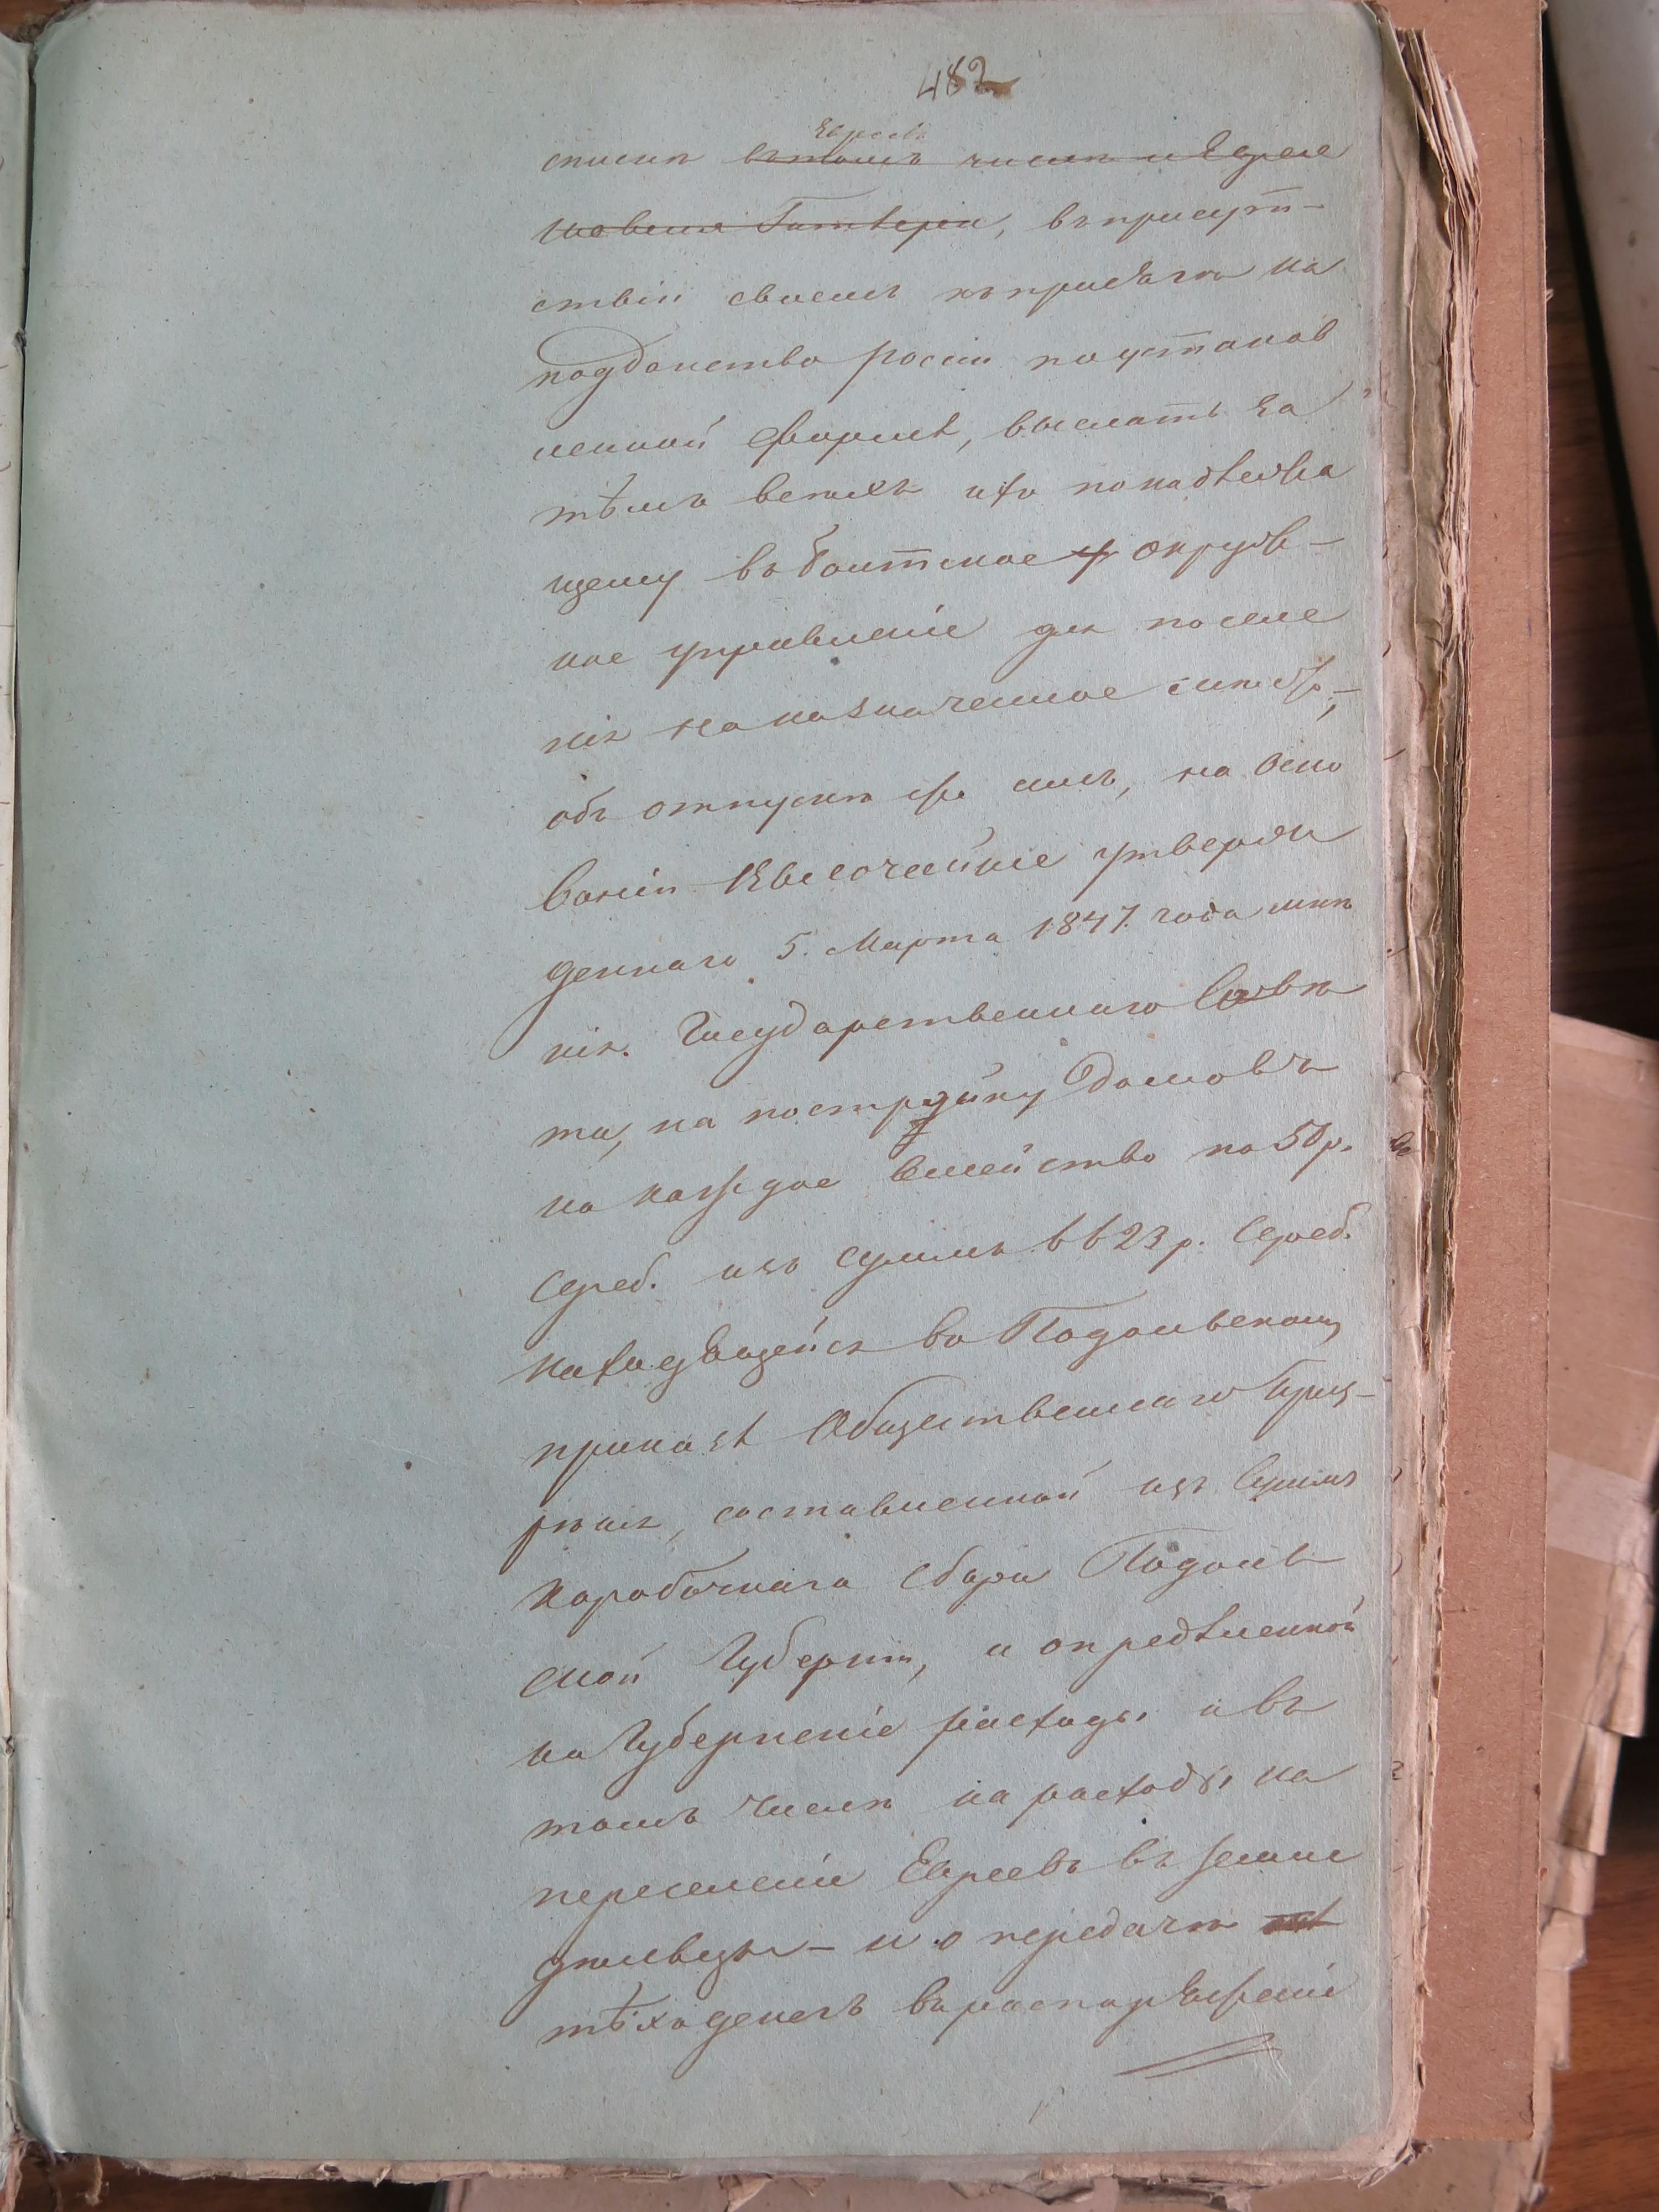 482
Евреевъ
списки въ томъ числѣ и Еврея
въ присут-
ствіи своемъ къ присягѣ на
подданство Росіи по установ
ленной формѣ, выслать за
тѣмъ всѣхъ ихъ по надлежа
щему въ Балтское у окруж-
ное управленіе для поселе
нія на назначенное имъ
объ отпускѣ же имъ, на осно
ваніи Высочайше утверж
деннаго 5. Марта 1847. года мнѣ
нія Государственнаго Совѣ
та, на постройку домовъ
на каждое семейство по 50 р.
сереб. изъ суммъ 6623 р. сереб.
находящейся въ Подольскомъ
приказѣ Общественнаго Приз-
рѣнія, составленной изъ суммъ
Коробочнаго сбора Подоль
ской Губерніи, и опредѣленной
на Губернскіе расходы и въ
томъ числѣ на расходы на
переселеніи Евреевъ въ земле
дѣльцы - и о передачѣ
тѣхъ денегъ въ распоряженіе